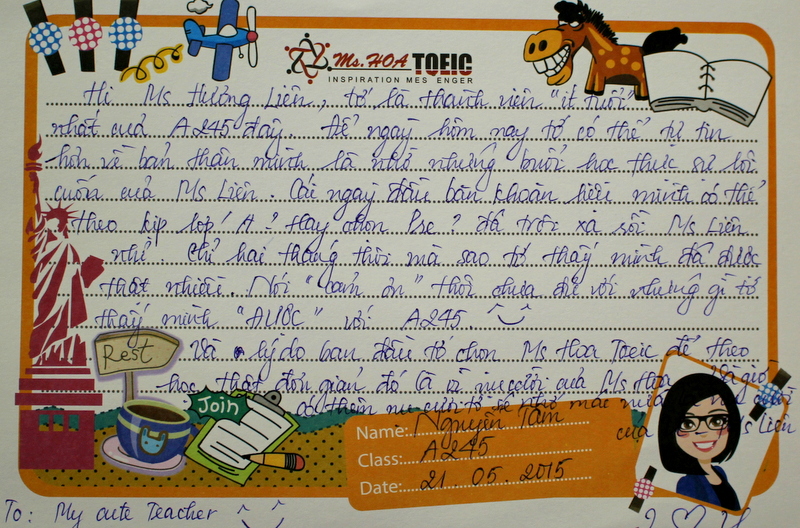 Ms. HOA TOEIC
INSPIRATION MES ENGER
Hi Ms Hương Liên, tớ là thành viên "ít tuổi"
nhất của A245 đây. Để ngày hôm nay tớ có thể tự tin
hơn về bản thân mình là nhờ những buổi học thực sự lôi
cuốn của Ms Liên. Cái ngày đầu băn khoăn liệu mình có thể
theo kịp lớp A? Hay chọn Pre? đã trôi xa rồi Ms Liên
nhỉ. Chỉ hai tháng thôi mà sao tớ thấy mình đã được
thật nhiều. Nói "cảm ơn" thôi chưa đủ với những gì tớ
thấy mình "ĐƯỢC" với A245.
Và lý do ban đầu tớ chọn Ms Hoa Toeic để theo
học thật đơn giản đó là vì nụ cười của Ms Hoa giờ
có thêm nụ cười tớ sẽ nhớ mãi nữa
của Ms Liên
Rest
Join
Name: Nguyễn Tâm
Class: A245
Date: 21.05.2015
To: My cute Teacher